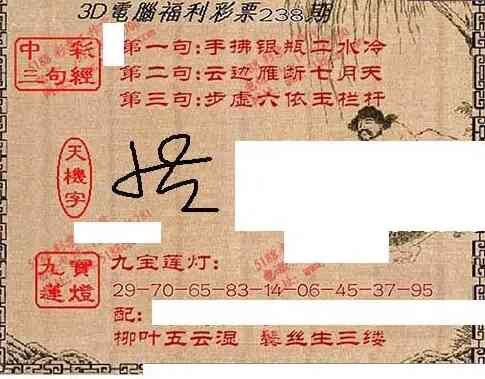 3D電腦福利彩票238期
中彩三句經
第一句:手拂银瓶二水冷
第二句:云边雁断七月天
第三句:步虚六依玉栏杆
天機字
九寶蓮燈
九宝莲灯:
29-70-65-83-14-06-45-37-95
配:
柳叶五云湿 鬓丝生三缕